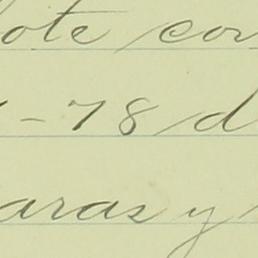 ote con
-78 d
aras y